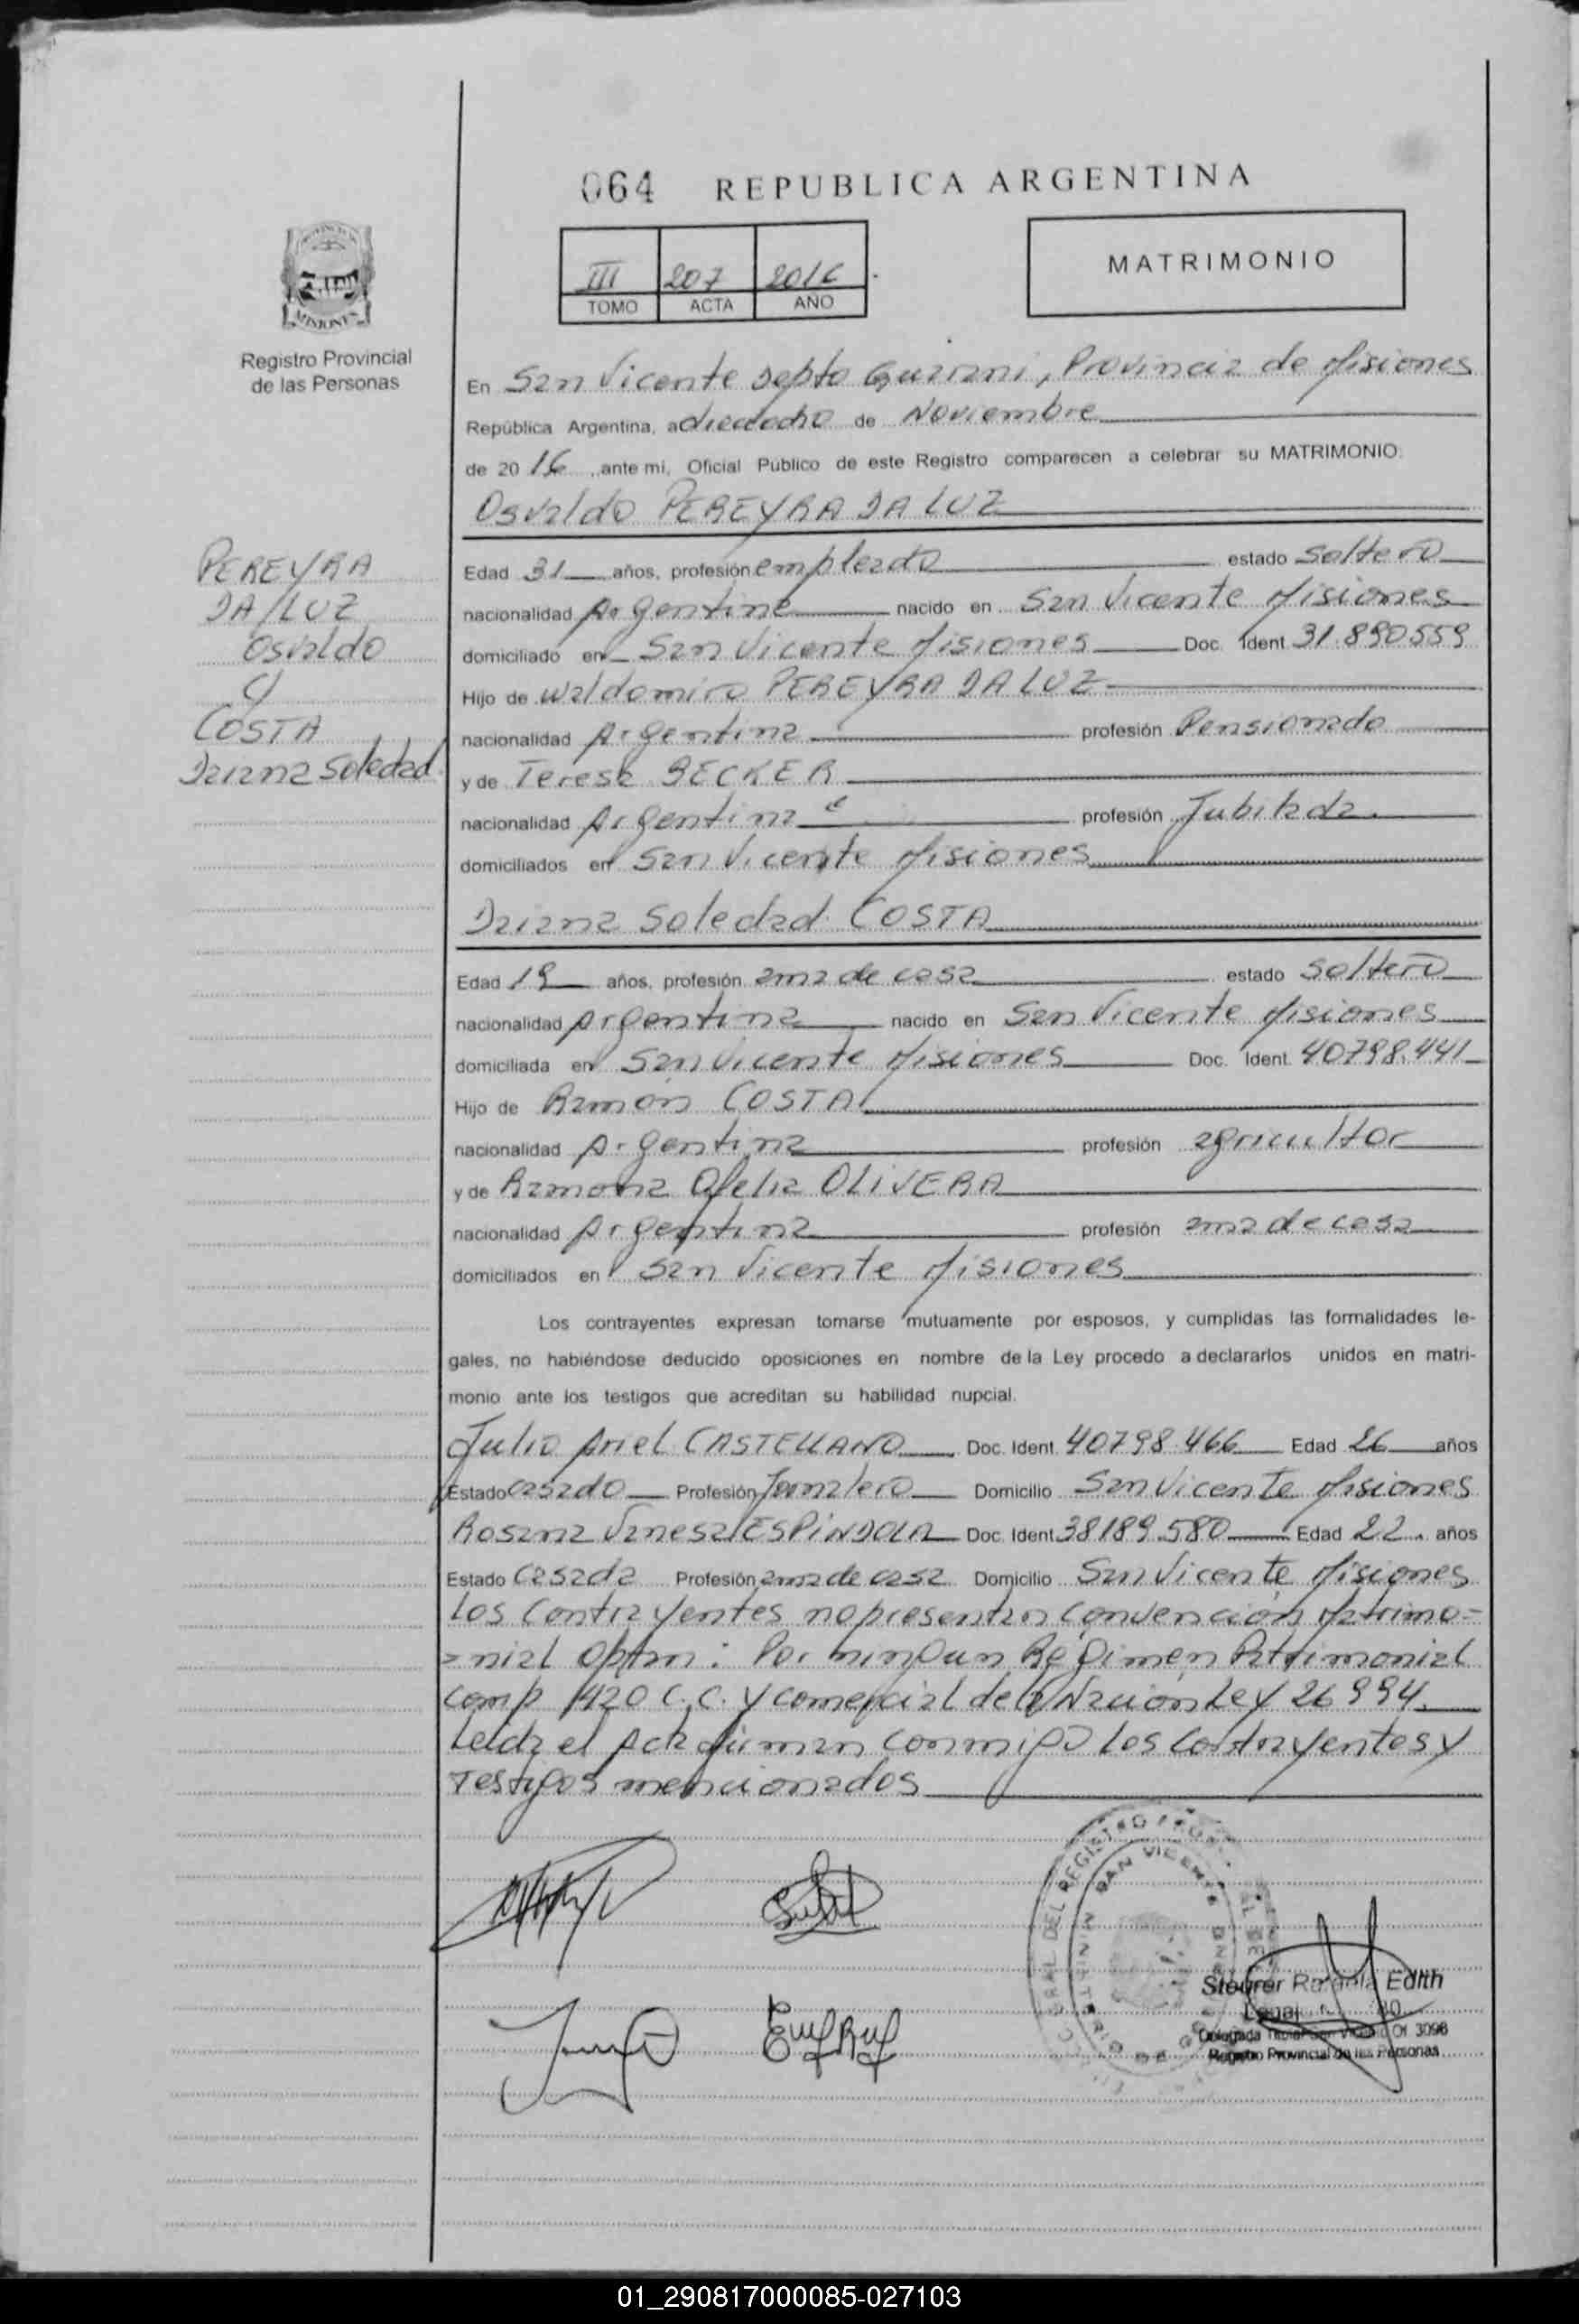 064 REPUBLICA ARGENTINA
III 207 2016
TOMO ACTA AÑO
MATRIMONIO
MISIONES
Registro Provincial
de las Personas
En San Vicente Depto Guarani, Provincia de Misiones
República Argentina, a dieciocho de Noviembre
de 20 16 ante mi, Oficial Público de este Registro comparecen a celebrar su MATRIMONIO:
Osvaldo PEREYRA DA LUZ
PEREYRA
DA LUZ
Osvaldo
c/
COSTA
Daiana Soledad
Edad 31 años, profesión empleado estado Soltero
nacionalidad Argentine nacido en San Vicente Misiones
domiciliado en San Vicente Misiones Doc. Ident. 31.890.559
Hijo de Waldomiro PEREYRA DA LUZ
nacionalidad Argentina profesión Pensionado
y de Teresa BECKER
nacionalidad Argentina profesión Jubilada.
domiciliados en San Vicente Misiones
Daiana Soledad COSTA
Edad 19 años, profesión ama de casa estado Soltero
nacionalidad Argentina nacido en San Vicente Misiones
domiciliada en San Vicente Misiones Doc. Ident. 40798.441
Hijo de Ramón COSTA
nacionalidad Argentina profesión agricultor
y de Ramona Ofelia OLIVERA
nacionalidad Argentina profesión ama de casa
domiciliados en San Vicente Misiones
Los contrayentes expresan tomarse mutuamente por esposos, y cumplidas las formalidades le-
gales, no habiéndose deducido oposiciones en nombre de la Ley procedo a declararlos unidos en matri-
monio ante los testigos que acreditan su habilidad nupcial.
Julio Ariel CASTELLANO Doc. Ident. 40798.466 Edad 26 años
Estado casado Profesión Jornalero Domicilio San Vicente Misiones
Rosana Vanesa ESPINDOLA Doc. Ident 38189.580 Edad 22. años
Estado Casada Profesión ama de casa Domicilio San Vicente Misiones
Los Contrayentes no presentan Convención Matrimo=
=nial Optan: Por ningun Régimen Patrimonial
Comp 420 C.C. y comercial de la Nación Ley 26994.
Leida el Acta firman conmigo los Contrayentes y
Testigos mencionados
DEL REGISTRO
SAN VICENTE
Steurer Edith
Delegada Titular San Vicente Of. 3098
Registro Provincial de las Personas
01_290817000085-027103